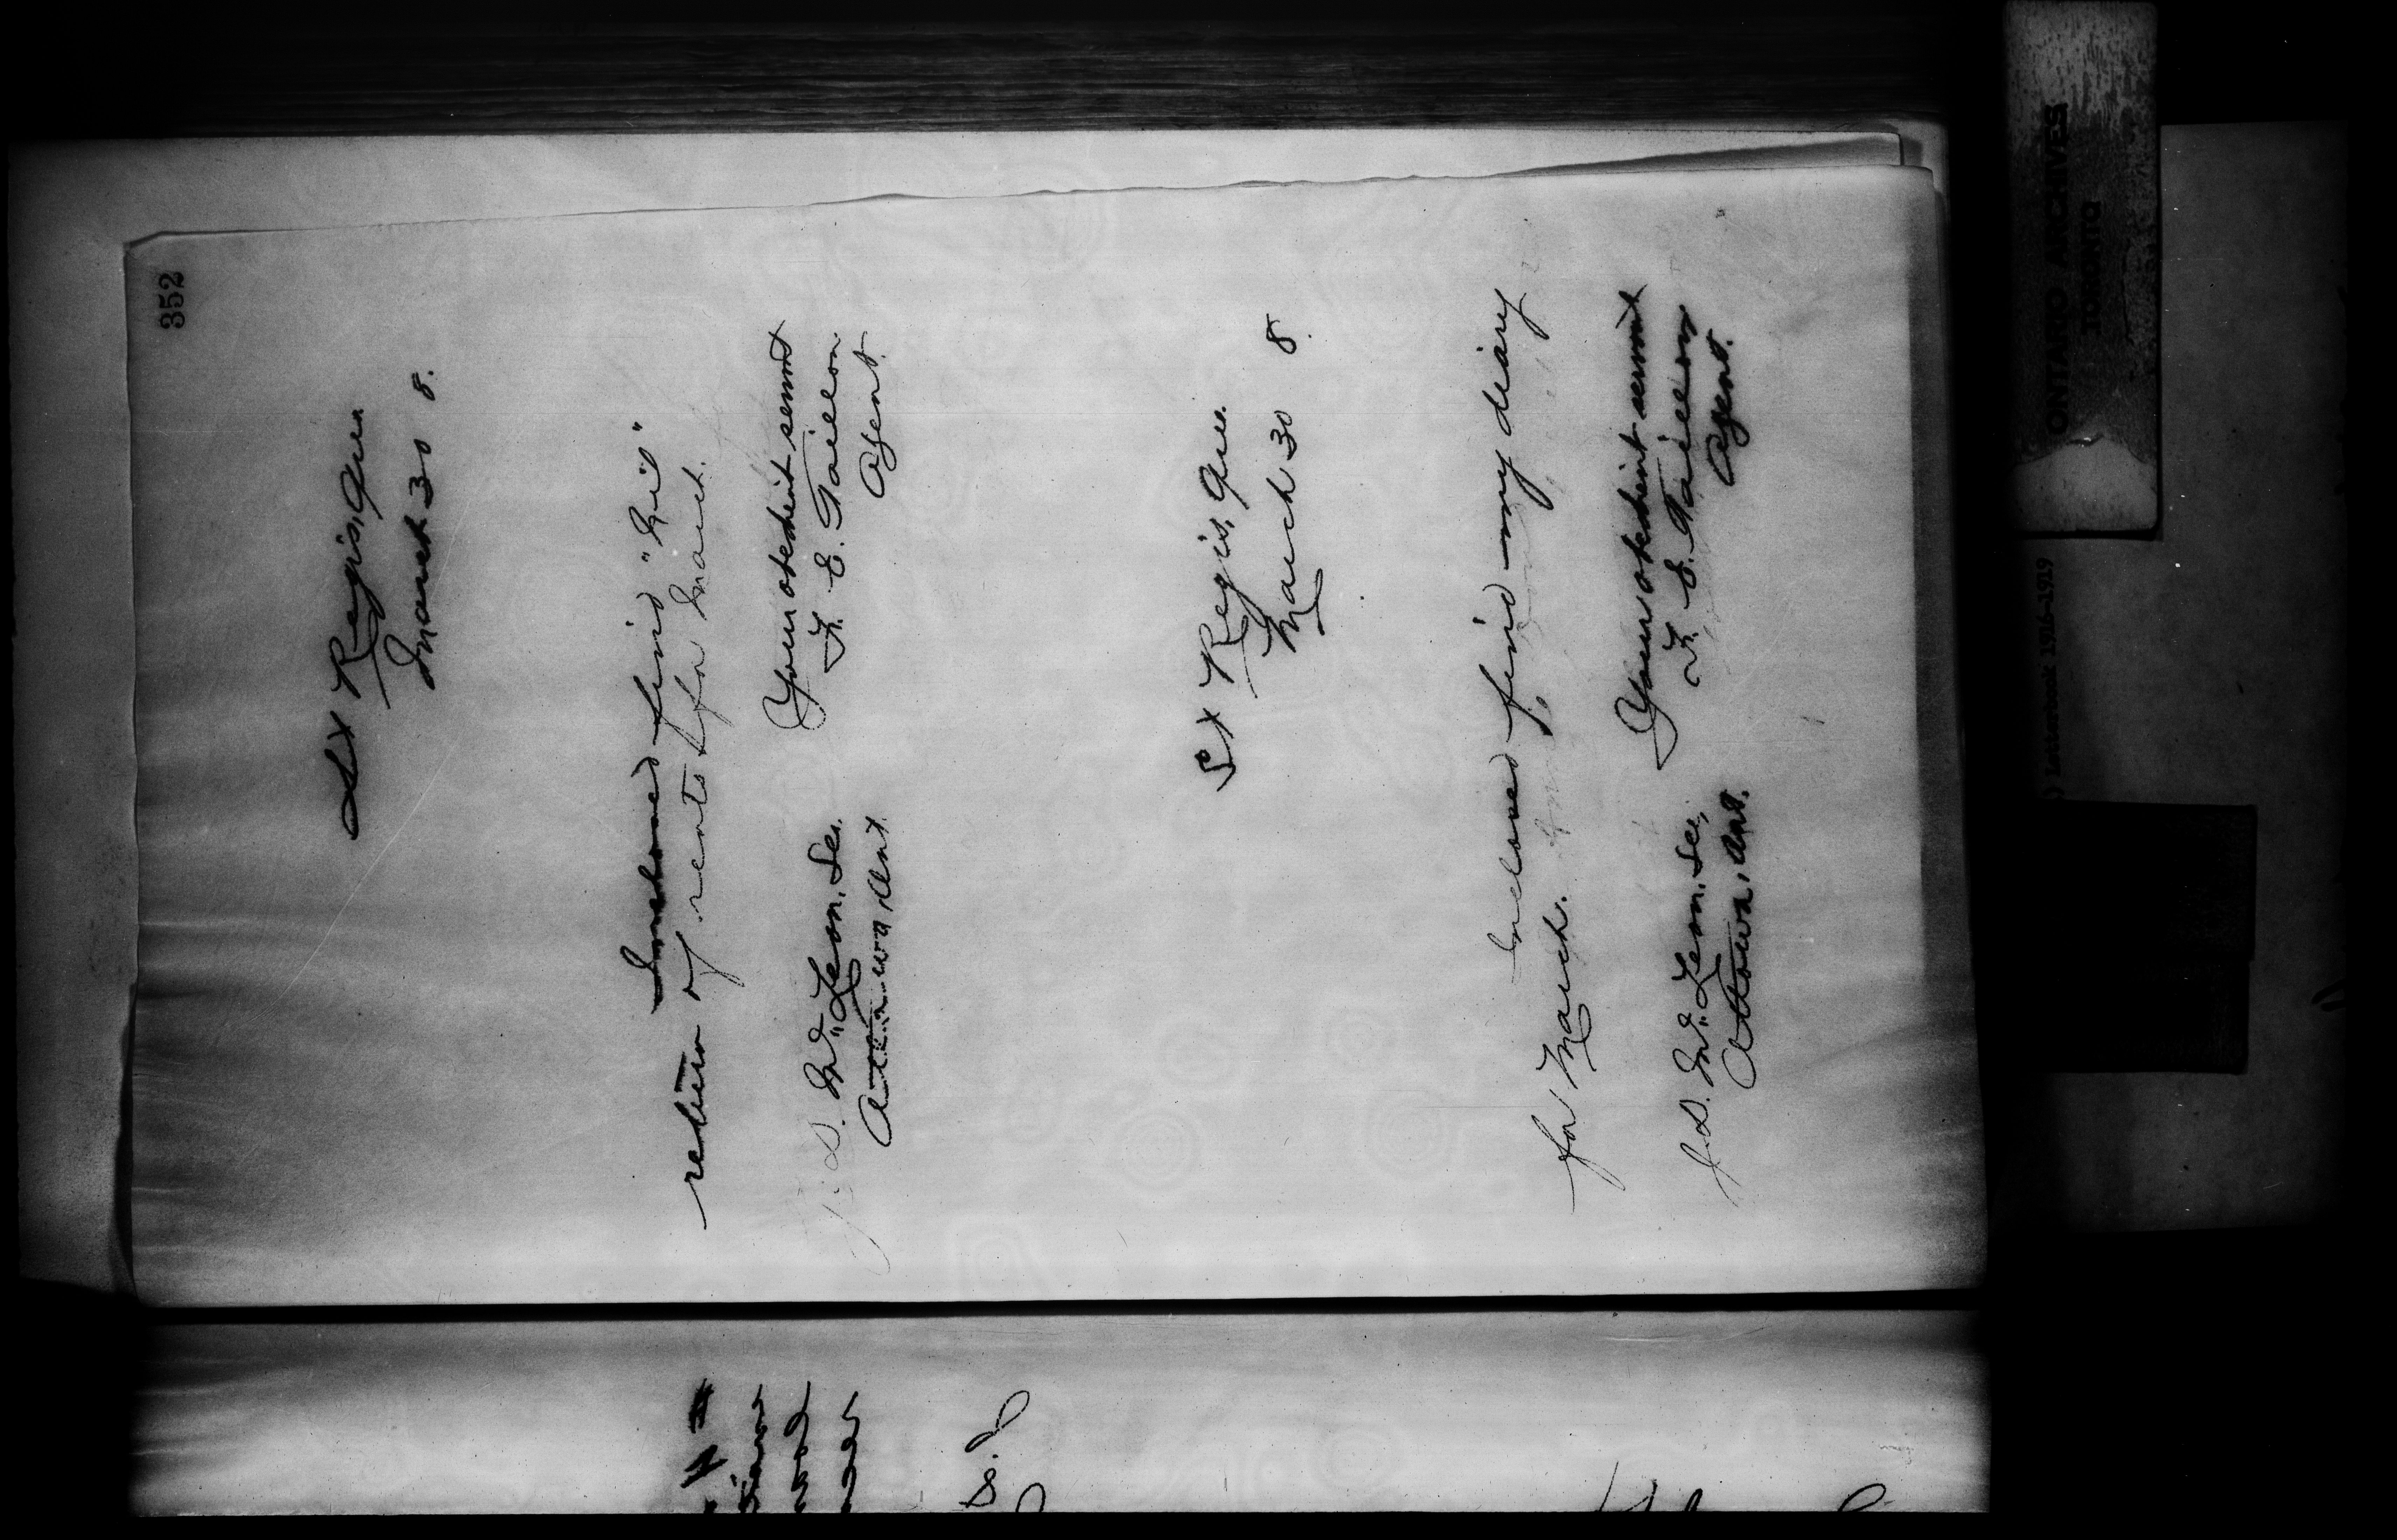 352
St Regis, Que.
March 30 8.
Inclosed find "Nil"
return of rents for March.
Your obedient servant
F. E. Taillon
Agent.
J. D. McLean, Sec.
Ottawa, Ont.
St Regis, Que.
March 30 8.
Inclosed find my diary
for March.
Your obedient servant
F. E. Taillon
Agent.
J. D. McLean, Sec,
Ottawa, Ont.
ONTARIO ARCHIVES
TORONTO
) Letterbook 1916-1919